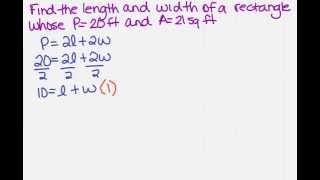 Find the length and width of a rectangle
whose P=20ft and A=21sqft
P=2l+2w
20=2l+2w
2 2 2
10=l+w (1)